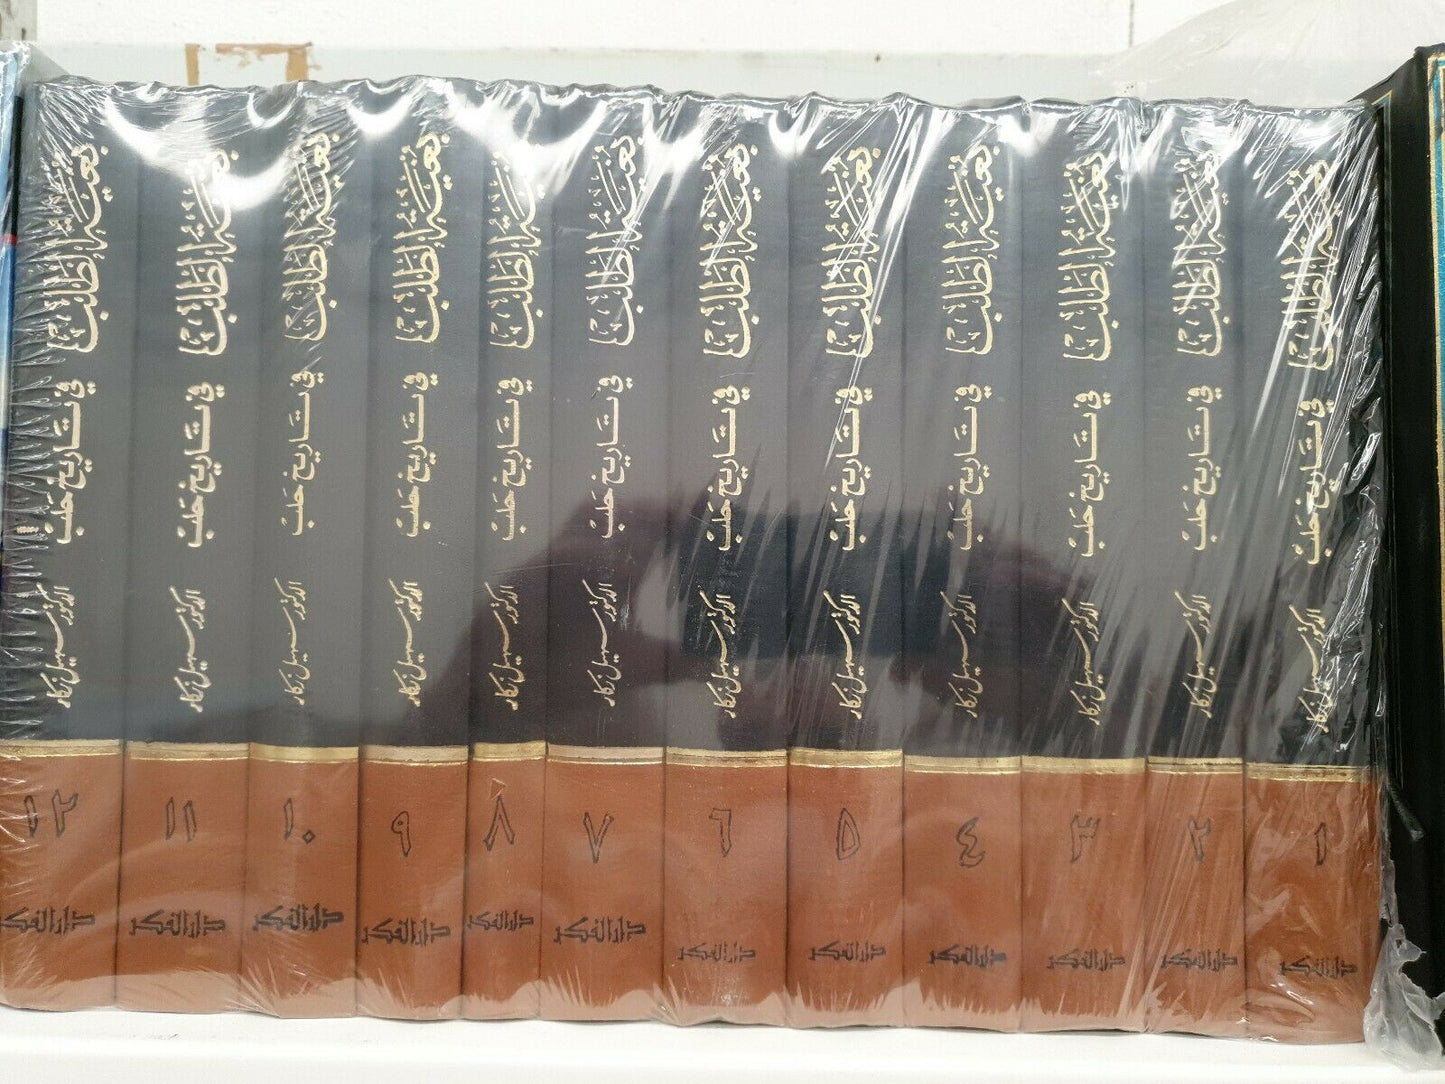 بُغيَة الطَّلَب
في تاريخ حَلَبْ
الدكتور سهيل زكار
١
دار الفكر
بُغيَة الطَّلَب
في تاريخ حَلَبْ
الدكتور سهيل زكار
٢
دار الفكر
بُغيَة الطَّلَب
في تاريخ حَلَبْ
الدكتور سهيل زكار
٣
دار الفكر
بُغيَة الطَّلَب
في تاريخ حَلَبْ
الدكتور سهيل زكار
٤
دار الفكر
بُغيَة الطَّلَب
في تاريخ حَلَبْ
الدكتور سهيل زكار
٥
دار الفكر
بُغيَة الطَّلَب
في تاريخ حَلَبْ
الدكتور سهيل زكار
٦
دار الفكر
بُغيَة الطَّلَب
في تاريخ حَلَبْ
الدكتور سهيل زكار
٧
دار الفكر
بُغيَة الطَّلَب
في تاريخ حَلَبْ
الدكتور سهيل زكار
٨
دار الفكر
بُغيَة الطَّلَب
في تاريخ حَلَبْ
الدكتور سهيل زكار
٩
دار الفكر
بُغيَة الطَّلَب
في تاريخ حَلَبْ
الدكتور سهيل زكار
١٠
دار الفكر
بُغيَة الطَّلَب
في تاريخ حَلَبْ
الدكتور سهيل زكار
١١
دار الفكر
بُغيَة الطَّلَب
في تاريخ حَلَبْ
الدكتور سهيل زكار
١٢
دار الفكر